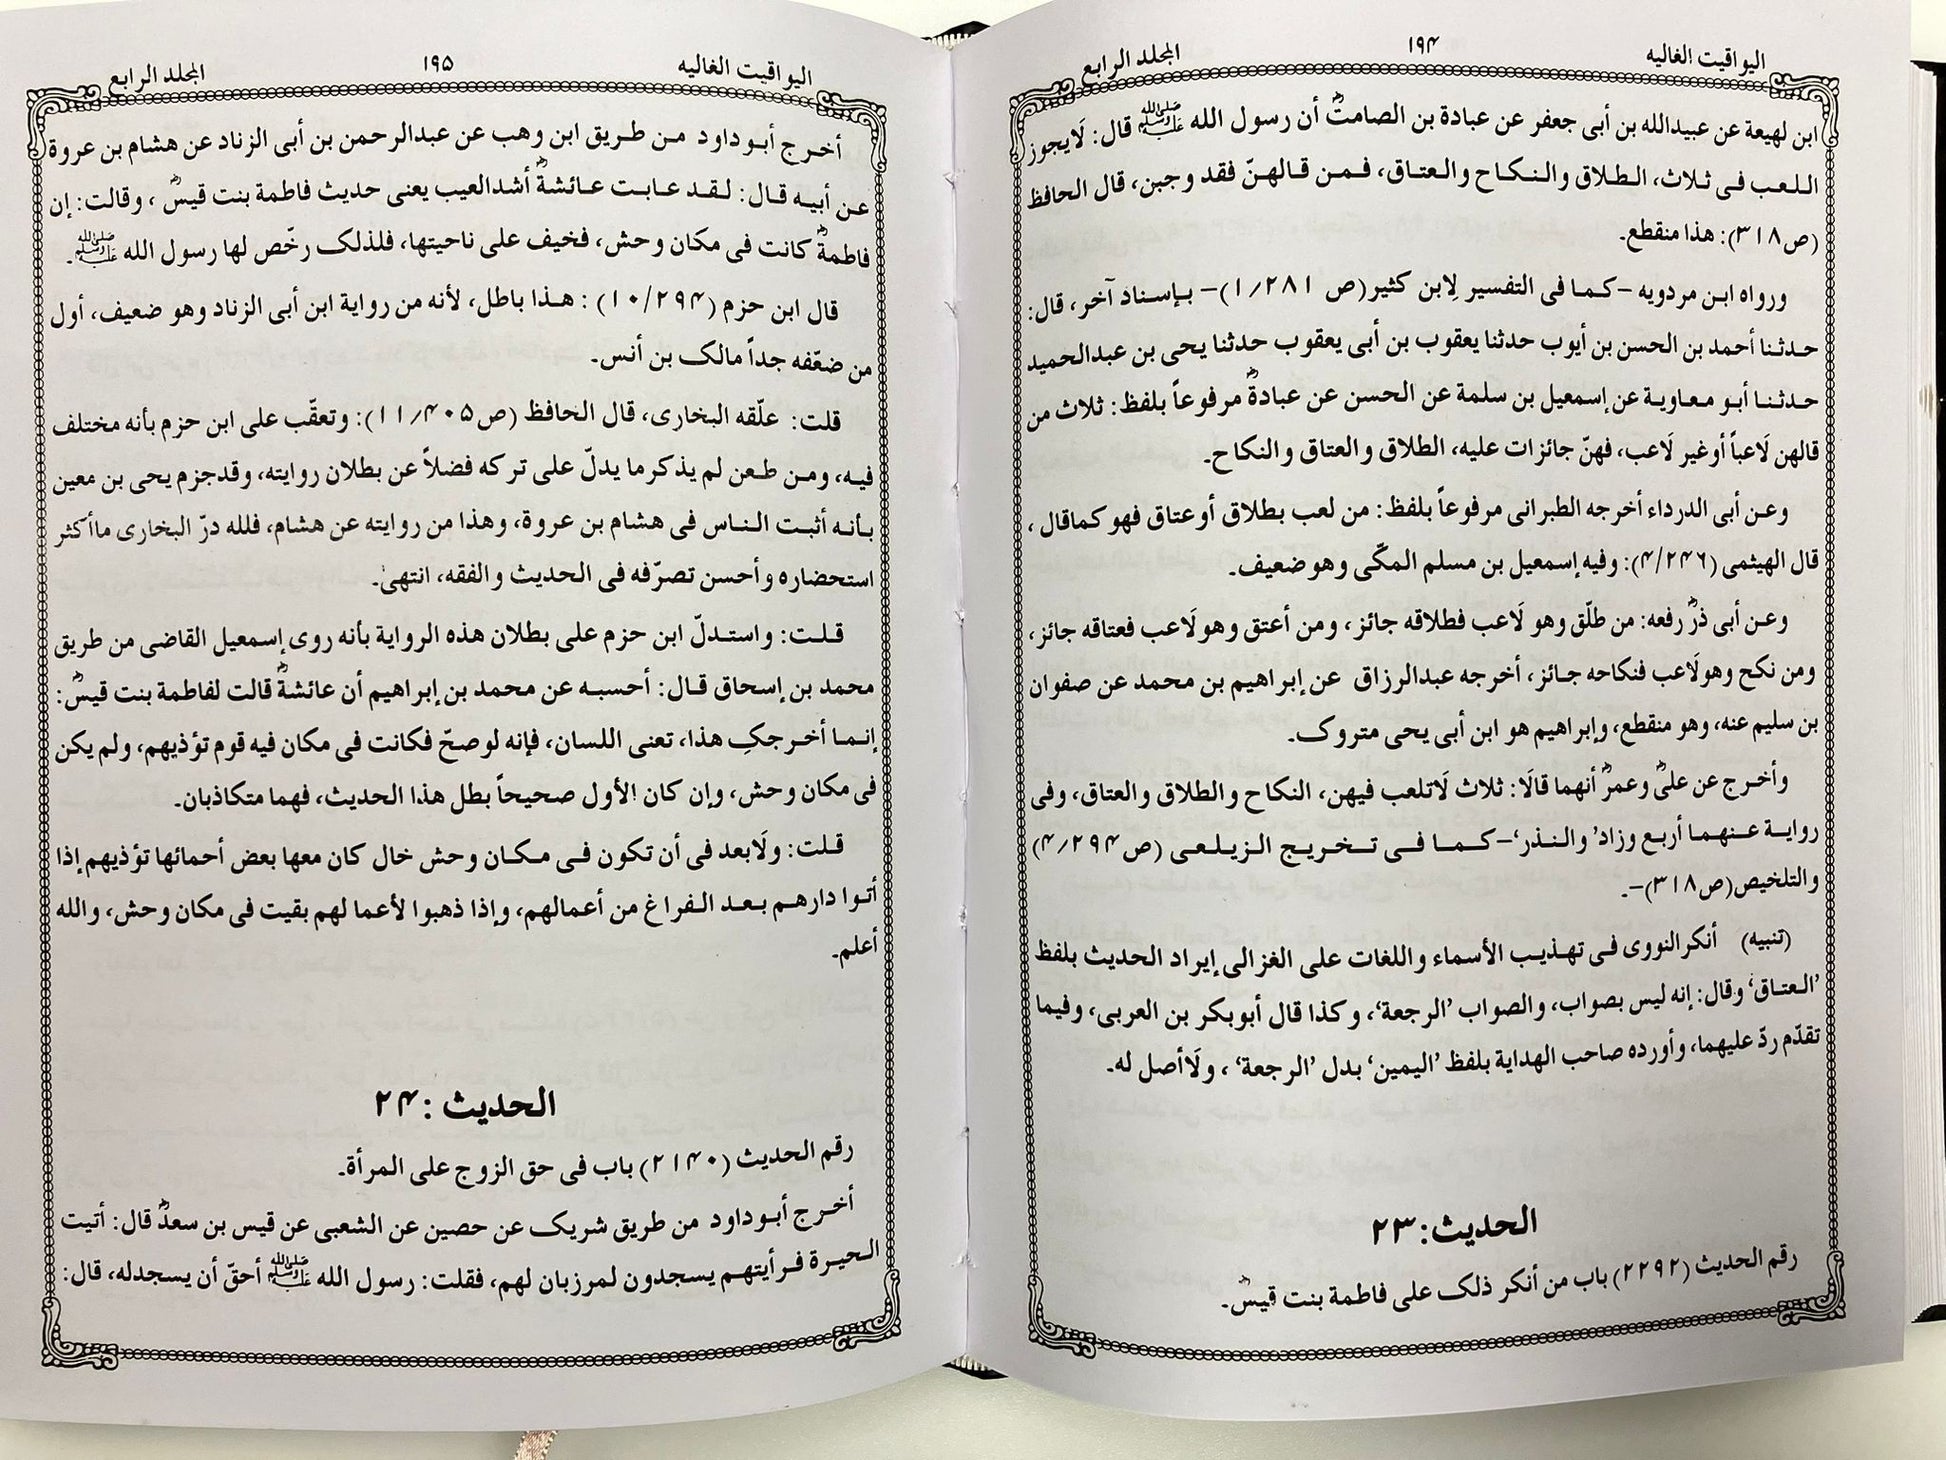 اليواقيت الغاليه ۱۹۴ المجلد الرابع
ابن لهيعة عن عبيدالله بن أبى جعفر عن عبادة بن الصامتؓ أن رسول الله ﷺ قال: لَايجوز
اللعب فى ثلاث، الطلاق والنكاح والعتاق، فمن قالهنّ فقد وجبن، قال الحافظ
(ص۳۱۸): هذا منقطع۔
ورواه ابن مردويه -كما فى التفسير لِابن كثير(ص ۱/۲۸۱)- بإسناد آخر، قال:
حدثنا أحمد بن الحسن بن أيوب حدثنا يعقوب بن أبى يعقوب حدثنا يحى بن عبدالحميد
حدثنا أبو معاوية عن إسمعيل بن سلمة عن الحسن عن عبادةؓ مرفوعاً بلفظ: ثلاث من
قالهن لَاعباً أوغير لَاعب، فهنّ جائزات عليه، الطلاق والعتاق والنكاح۔
وعن أبى الدرداء أخرجه الطبرانى مرفوعاً بلفظ: من لعب بطلاق أوعتاق فهو كماقال ،
قال الهيثمى (۴/۲۴۶): وفيه إسمعيل بن مسلم المكّى وهو ضعيف۔
وعن أبى ذرؓ رفعه: من طلّق وهو لَاعب فطلاقه جائز، ومن أعتق وهو لَاعب فعتاقه جائز،
ومن نكح وهولَاعب فنكاحه جائز، أخرجه عبدالرزاق عن إبراهيم بن محمد عن صفوان
بن سليم عنه، وهو منقطع، وإبراهيم هو ابن أبى يحى متروک۔
وأخرج عن علىؓ وعمرؓ أنهما قالَا: ثلاث لَاتلعب فيهن، النكاح والطلاق والعتاق، وفى
رواية عنهما أربع وزاد’ والنذر‘-كما فى تخريج الزيلعى (ص۴/۲۹۴)
والتلخيص(ص۳۱۸)-۔
(تنبيه) أنكرالنووى فى تهذيب الأسماء واللغات على الغزالى إيراد الحديث بلفظ
’العتاق‘ وقال: إنه ليس بصواب، والصواب ’الرجعة‘، وكذا قال أبوبكر بن العربى، وفيما
تقدّم ردّ عليهما، وأورده صاحب الهداية بلفظ ’اليمين‘ بدل ’الرجعة‘ ، ولَاأصل له۔
الحديث: ۲۳
رقم الحديث (۲۲۹۲) باب من أنكر ذلک على فاطمة بنت قيسؓ۔
اليواقيت الغاليه ۱۹۵ المجلد الرابع
أخرج أبوداود من طريق ابن وهب عن عبدالرحمن بن أبى الزناد عن هشام بن عروة
عن أبيه قال: لقد عابت عائشةؓ أشدالعيب يعنى حديث فاطمة بنت قيسؓ ، وقالت: إن
فاطمةؓ كانت فى مكان وحش، فخيف على ناحيتها، فلذلک رخّص لها رسول الله ﷺ۔
قال ابن حزم (۱۰/۲۹۴) : هذا باطل، لأنه من رواية ابن أبى الزناد وهو ضعيف، أول
من ضعّفه جداً مالک بن أنس۔
قلت: علّقه البخارى، قال الحافظ (ص۱۱/۴۰۵): وتعقّب على ابن حزم بأنه مختلف
فيه، ومن طعن لم يذكرما يدلّ على تركه فضلاً عن بطلان روايته، وقدجزم يحى بن معين
بأنه أثبت الناس فى هشام بن عروة، وهذا من روايته عن هشام، فلله درّ البخارى ماأكثر
استحضاره وأحسن تصرّفه فى الحديث والفقه، انتهىٰ۔
قلت: واستدلّ ابن حزم على بطلان هذه الرواية بأنه روى إسمعيل القاضى من طريق
محمد بن إسحاق قال: أحسبه عن محمد بن إبراهيم أن عائشةؓ قالت لفاطمة بنت قيسؓ:
إنما أخرجکِ هذا، تعنى اللسان، فإنه لوصحّ فكانت فى مكان فيه قوم تؤذيهم، ولم يكن
فى مكان وحش، وإن كان الأول صحيحاً بطل هذا الحديث، فهما متكاذبان۔
قلت: ولَابعد فى أن تكون فى مكان وحش خال كان معها بعض أحمائها تؤذيهم إذا
أتوا دارهم بعد الفراغ من أعمالهم، وإذا ذهبوا لأعما لهم بقيت فى مكان وحش، والله
أعلم۔
الحديث :۲۴
رقم الحديث (۲۱۴۰) باب فى حق الزوج على المرأة۔
أخرج أبوداود من طريق شريک عن حصين عن الشعبى عن قيس بن سعدؓ قال: أتيت
الحيرة فرأيتهم يسجدون لمرزبان لهم، فقلت: رسول الله ﷺ أحقّ أن يسجدله، قال: